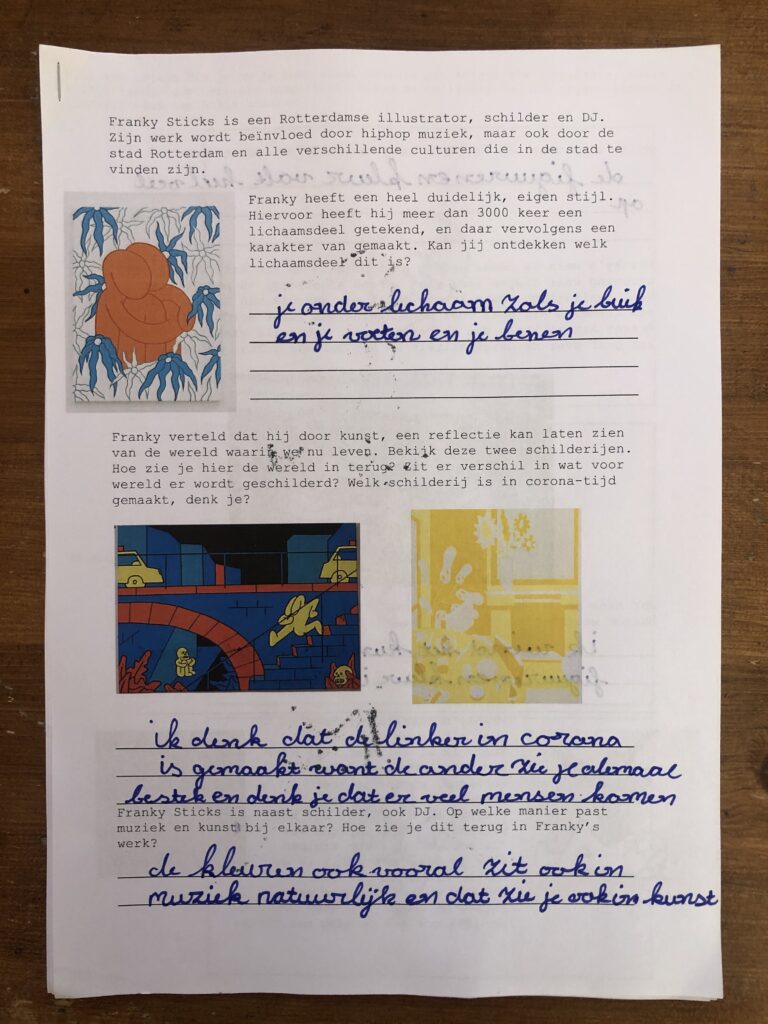 Franky Sticks is een Rotterdamse illustrator, schilder en DJ.
Zijn werk wordt beïnvloed door hiphop muziek, maar ook door de
stad Rotterdam en alle verschillende culturen die in de stad te
vinden zijn.
Franky heeft een heel duidelijk, eigen stijl.
Hiervoor heeft hij meer dan 3000 keer een
lichaamsdeel getekend, en daar vervolgens een
karakter van gemaakt. Kan jij ontdekken welk
lichaamsdeel dit is?
je onder lichaam zols je buik
en je voeten en je benen
Franky verteld dat hij door kunst, een reflectie kan laten zien
van de wereld waarin we nu leven. Bekijk deze twee schilderijen.
Hoe zie je hier de wereld in terug? Zit er verschil in wat voor
wereld er wordt geschilderd? Welk schilderij is in corona-tijd
gemaakt, denk je?
ik denk dat de linker in corana
is gemaakt want de ander zie je alemaal
bestek en denk je dat er veel mensen komen
Franky Sticks is naast schilder, ook DJ. Op welke manier past
muziek en kunst bij elkaar? Hoe zie je dit terug in Franky's
werk?
de kleuren ook vooral zit ook in
muziek natuurlijk en dat zie je ook in kunst